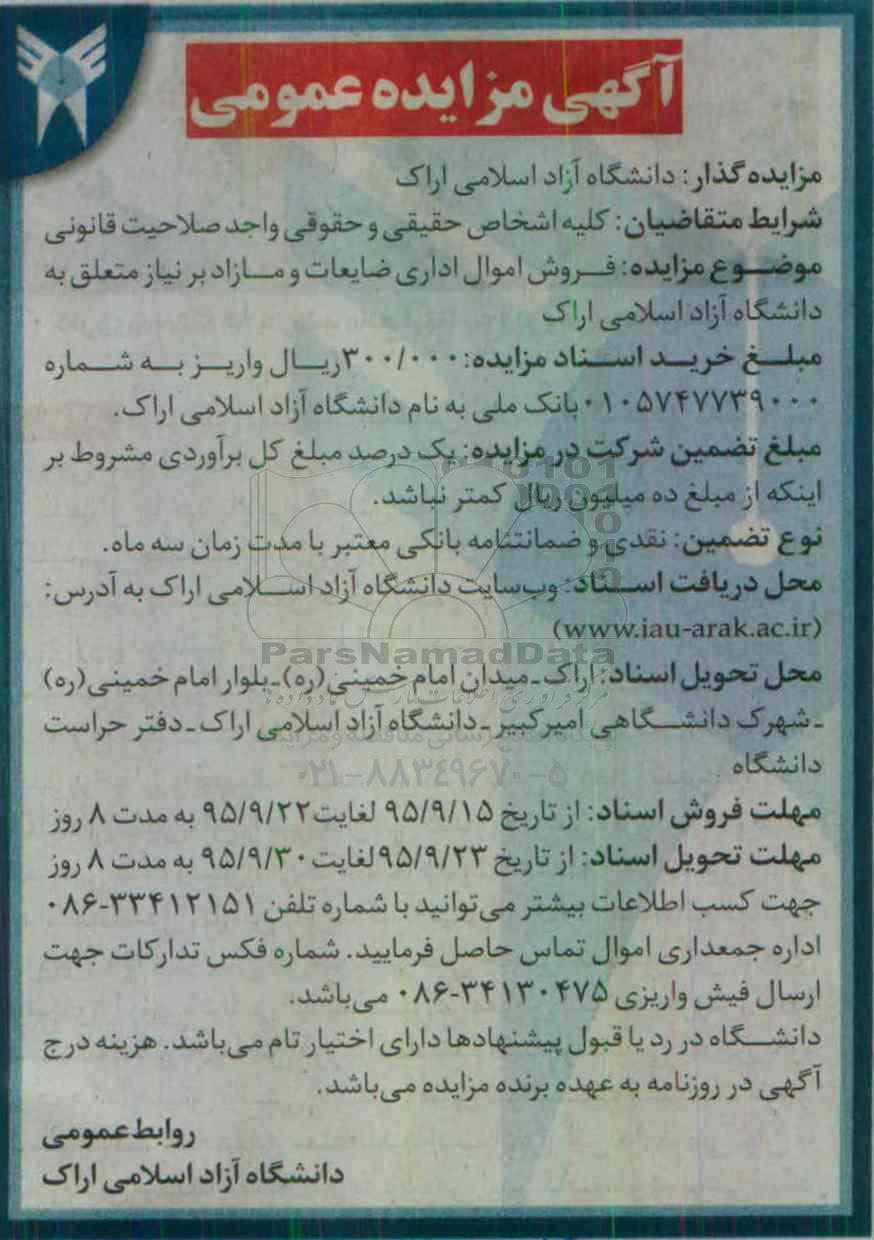 آگهی مزایده عمومی
مزایده گذار: دانشگاه آزاد اسلامی اراک
شرایط متقاضیان: کلیه اشخاص حقیقی و حقوقی واجد صلاحیت قانونی
موضوع مزایده: فروش اموال اداری ضایعات و مازاد بر نیاز متعلق به
دانشگاه آزاد اسلامی اراک
مبلغ خرید اسناد مزایده: ۳۰۰/۰۰۰ ریال واریز به شماره
۰۱۰۵۷۴۷۷۳۹۰۰۰ بانک ملی به نام دانشگاه آزاد اسلامی اراک.
مبلغ تضمین شرکت در مزایده: یک درصد مبلغ کل برآوردی مشروط بر
اینکه از مبلغ ده میلیون ریال کمتر نباشد.
نوع تضمین: نقدی و ضمانتنامه بانکی معتبر با مدت زمان سه ماه.
محل دریافت اسناد: وب‌سایت دانشگاه آزاد اسلامی اراک به آدرس:
(www.iau-arak.ac.ir)
ParsNamadData
محل تحویل اسناد: اراک ـ میدان امام خمینی(ره) ـ بلوار امام خمینی(ره)
ـ شهرک دانشگاهی امیرکبیر ـ دانشگاه آزاد اسلامی اراک ـ دفتر حراست
دانشگاه
۰۲۱-۸۸۳۴۹۶۷۰-۵
مهلت فروش اسناد: از تاریخ ۹۵/۹/۱۵ لغایت ۹۵/۹/۲۲ به مدت ۸ روز
مهلت تحویل اسناد: از تاریخ ۹۵/۹/۲۳ لغایت ۹۵/۹/۳۰ به مدت ۸ روز
جهت کسب اطلاعات بیشتر می‌توانید با شماره تلفن ۳۳۴۱۲۱۵۱-۰۸۶
اداره جمعداری اموال تماس حاصل فرمایید. شماره فکس تدارکات جهت
ارسال فیش واریزی ۳۴۱۳۰۴۷۵-۰۸۶ می‌باشد.
دانشگاه در رد یا قبول پیشنهادها دارای اختیار تام می‌باشد. هزینه درج
آگهی در روزنامه به عهده برنده مزایده می‌باشد.
روابط عمومی
دانشگاه آزاد اسلامی اراک